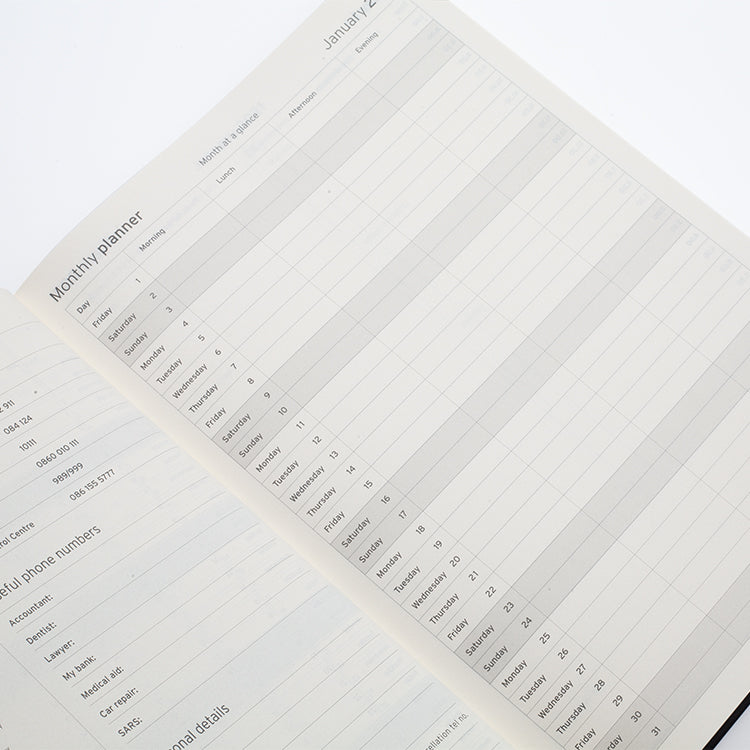 911
084 124
10111
0860 010 111
989/999
086 155 5777
Centre
phone numbers
Accountant:
Dentist:
Lawyer:
My bank:
Medical aid:
Car repair:
SARS:
details
tel no.
January 2
Monthly planner
Month at a glance
Day Morning Lunch Afternoon Evening
Friday 1
Saturday 2
Sunday 3
Monday 4
Tuesday 5
Wednesday 6
Thursday 7
Friday 8
Saturday 9
Sunday 10
Monday 11
Tuesday 12
Wednesday 13
Thursday 14
Friday 15
Saturday 16
Sunday 17
Monday 18
Tuesday 19
Wednesday 20
Thursday 21
Friday 22
Saturday 23
Sunday 24
Monday 25
Tuesday 26
Wednesday 27
Thursday 28
Friday 29
Saturday 30
31